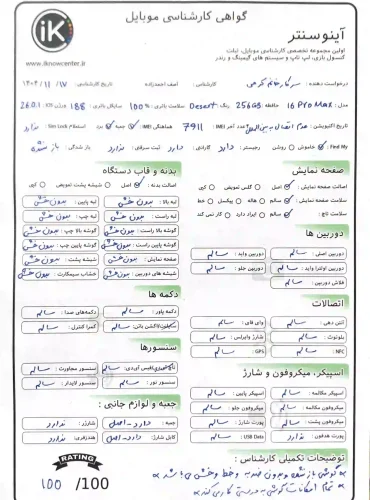 گواهی کارشناسی موبایل
آینوسنتر
اولین مجموعه تخصصی کارشناسی موبایل، تبلت
کنسول بازی، لپ تاپ و سیستم های گیمینگ و رندر
iK
www.iknowcenter.ir
درخواست دهنده : سرکار خانم کرمی کارشناس : آصف احمدزاده تاریخ کارشناسی : ۱۴۰۴ / ۱۱ / ۱۷
مدل : 16 Pro Max حافظه : 256GB رنگ : Desert سلامت باتری : % 100 سایکل باتری : 188 ورژن iOS : 26.0.1
تاریخ اکتیویشن : عدم اتصال به چهار رقم آخر IMEI : 7911 هماهنگی IMEI : جعبه برد Sim Lock استعلام : ندارد
Find My : خاموش روشن رجیستر : دارد گارانتی : دارد ثبت سرقتی : ندارد باز شدگی : باز نشده
صفحه نمایش
اصالت صفحه نمایش : اصل گلس تعویض کپی
سلامت صفحه نمایش : سالم هاله پیکسل خط
سلامت تاچ : سالم ایراد دارد کار نمی کند
دوربین ها
دوربین اصلی : سالم دوربین واید : سالم
دوربین اولترا واید : سالم دوربین جلو : سالم
فلاش دوربین : سالم
اتصالات
آنتن دهی : سالم وای فای : سالم
بلوتوث : سالم شارژ وایرلس : سالم
NFC : سالم GPS : سالم
اسپیکر، میکروفون و شارژ
اسپیکر مکالمه : سالم اسپیکر پایین : سالم
میکروفون مکالمه : سالم میکروفون جلو : سالم
میکروفون پشت : سالم پورت شارژ : سالم
پورت هدفون : ندارد USB Data : سالم
بدنه و قاب دستگاه
اصالت بدنه : اصل شیشه پشت تعویض کپی
لبه بالا : بدون خش لبه پایین : بدون خش
لبه راست : بدون خش لبه چپ : بدون خش
گوشه بالا راست : بدون خش گوشه بالا چپ : بدون خش
گوشه پایین راست : بدون خش گوشه پایین چپ : بدون خش
صفحه نمایش : بدون خش شیشه پشت : بدون خش
شیشه های دوربین : بدون خش خشاب سیمکارت : بدون خش
دکمه ها
دکمه پاور : سالم دکمه‌های صدا : سالم
سایلنت/اکشن باتن : سالم کمرا کنترل : سالم
سنسورها
تاچ آیدی/فیس آیدی : سالم سنسور مجاورت : سالم
سنسور نور : سالم سنسور لایدار : سالم
جعبه و لوازم جانبی :
جعبه : دارد - اصل شارژر : ندارد
کابل شارژ : دارد - اصل هندزفری : ندارد
RATING
100 /100
توضیحات تکمیلی کارشناس :
* گوشی باز نشده و بدون ضربه و خط و خش می باشد *
* تمام امکانات گوشی به درستی کار می کند *